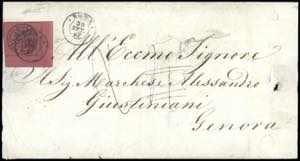 ROMA
All'Eccmo Signore
A Sig. Marchese Alessandro
Giustiniani
Genova